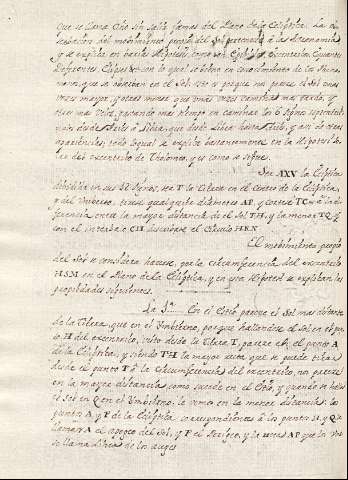 que se llama Año sin salir jamas del Plano de la Ecliptica. La
del movimiento propio del Sol pertenece a las Astronomia
y se explica en varias Hipotesis, como son Epiciclo, Excentricos Equante
Deferentes, Elipses &c con lo que se
que se observan en el Sol: esto es porque nos parece el Sol unas
vezes mayor, y otras menor que unas vezes camina mas tardo, y
otras mas veloz, gastando mas tiempo en caminar los 6 signos septentrio
desde Aries a Libra, que desde Libra hasta Aries, y asi de otras
apariencias; todo lo qual se explica bastantemente en la Hipotesi so
lar del excentrico de Tholomeo, y es como se sigue.
Sea AXV la Ecliptica
dividida en sus 12 signos; sea T la Tierra en el Centro de la Ecliptica,
y del Universo, tirese qualquiera diametro AP, y cortese TC a la di
ferencia entre la mayor distancia de el Sol TH, y la menor TQ y
con el intervalo CH describase el Circulo HKN
El movimiento propio
del Sol se considera hacerse por la circunferencia del excentrico
HSM en el Plano de la Ecliptica, y en esta Hipotesi se explican las
propiedades siguientes.
La 1ª En el Estio parece el Sol mas distante
de la Tierra, que en el Imbierno, porque hallandose el Sol en el pun
to H del excentrico, visto desde la Tierra T, parece en el punto A
de la Ecliptica, y siendo TH la mayor recta que se puede tirar
desde el punto T a la Circunferencia del excentrico, nos parece
en la mayor distancia como sucede en el Estio, y quando se halla
el Sol en Q en el Imbierno, le vemos en la menor distancia: los
puntos A y P de la Ecliptica correspondientes a los puntos H, y Q se
llaman A el apogeo del Sol, y P el Perigeo, y la recta AP que los une
se llama Linea de los auges